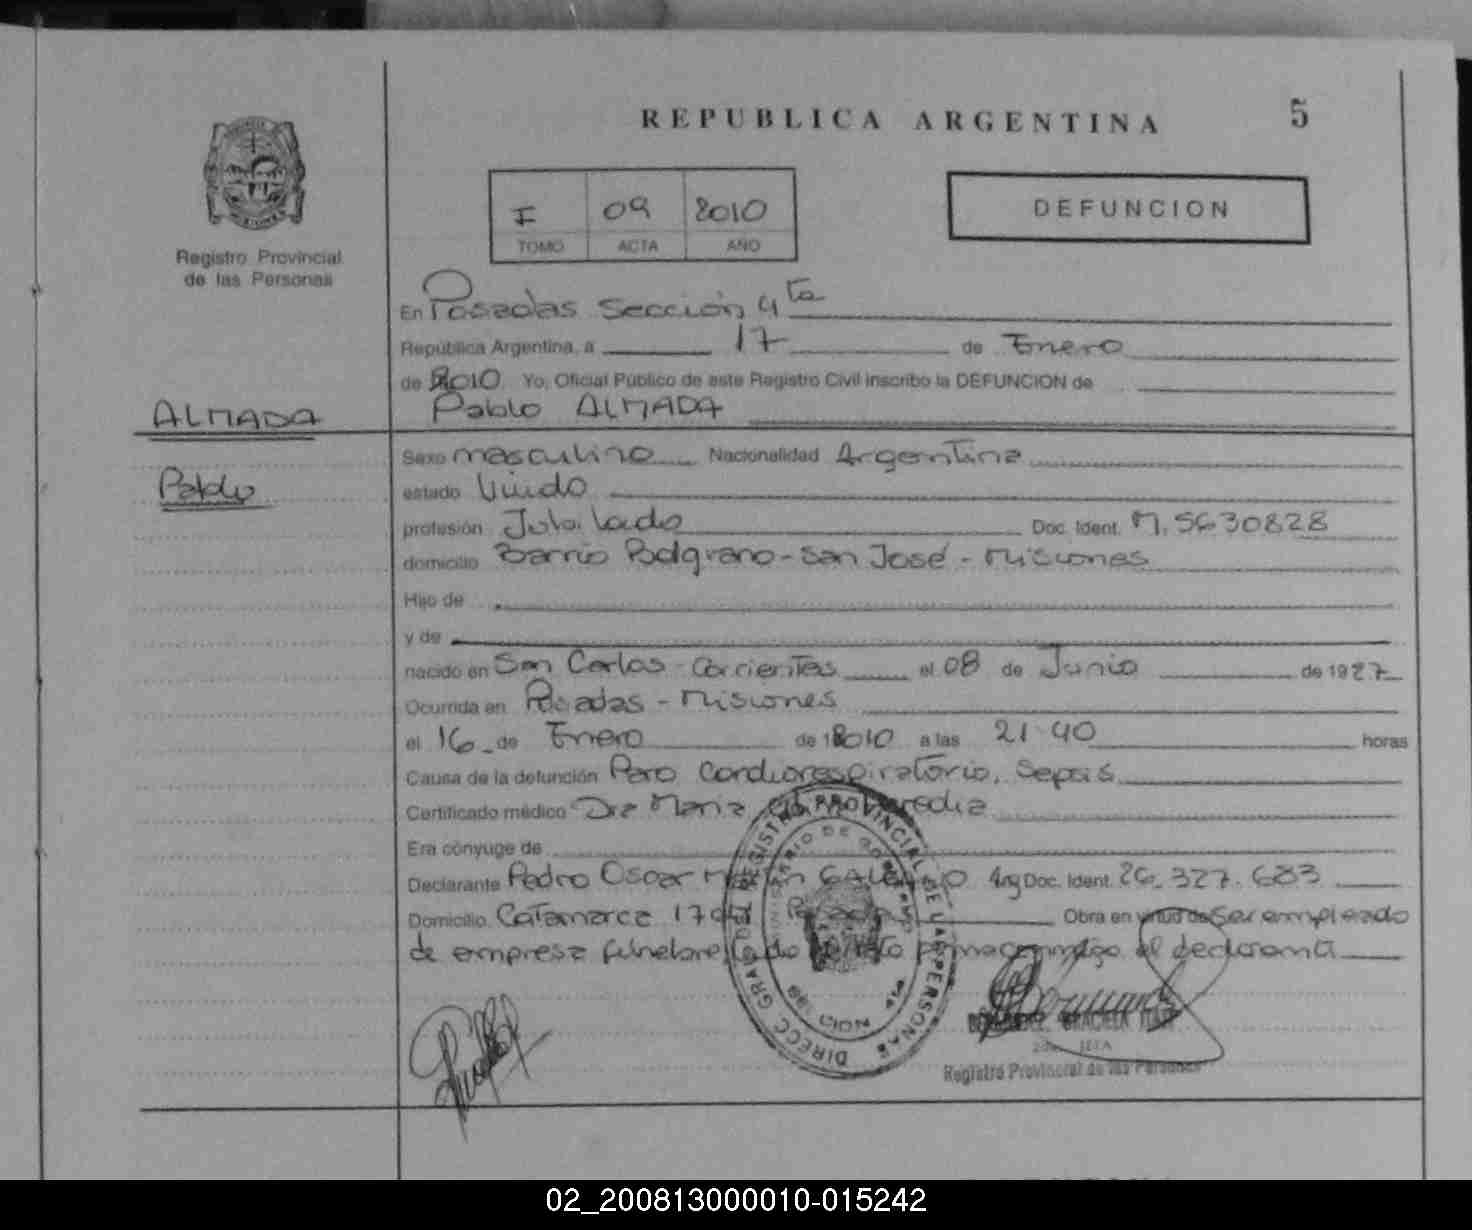 REPUBLICA ARGENTINA
5
Registro Provincial
de las Personas
I 09 2010
TOMO ACTA AÑO
DEFUNCION
En Posadas Sección 4ta
República Argentina, a 17 de Enero
de 2010. Yo, Oficial Público de este Registro Civil inscribo la DEFUNCION de
ALMADA
Pablo ALMADA
Pablo
Sexo masculino Nacionalidad Argentina
estado Viudo
profesión Jubilado Doc. Ident. M. 5630828
domicilio Barrio Belgrano - San José - Misiones
Hijo de
y de
nacido en San Carlos - Corrientes el 08 de Junio de 1927
Ocurrida en Posadas - Misiones
el 16 de Enero de 2010 a las 21 40 horas
Causa de la defunción Paro Cardiorespiratorio, Sepsis
Certificado médico Dra Maria
Era cónyuge de
Declarante Pedro Oscar Arg Doc. Ident. 26.327.683
Domicilio Catamarca Obra en virtud de ser empleado
de empresa fúnebre el declarante
DIRECC. GRAL. DEL REGISTRO PROVINCIAL DE LAS PERSONAS
MINISTERIO DE GOBIERNO
GRACIELA
JEFA
Registro Provincial de las Personas
02_200813000010-015242